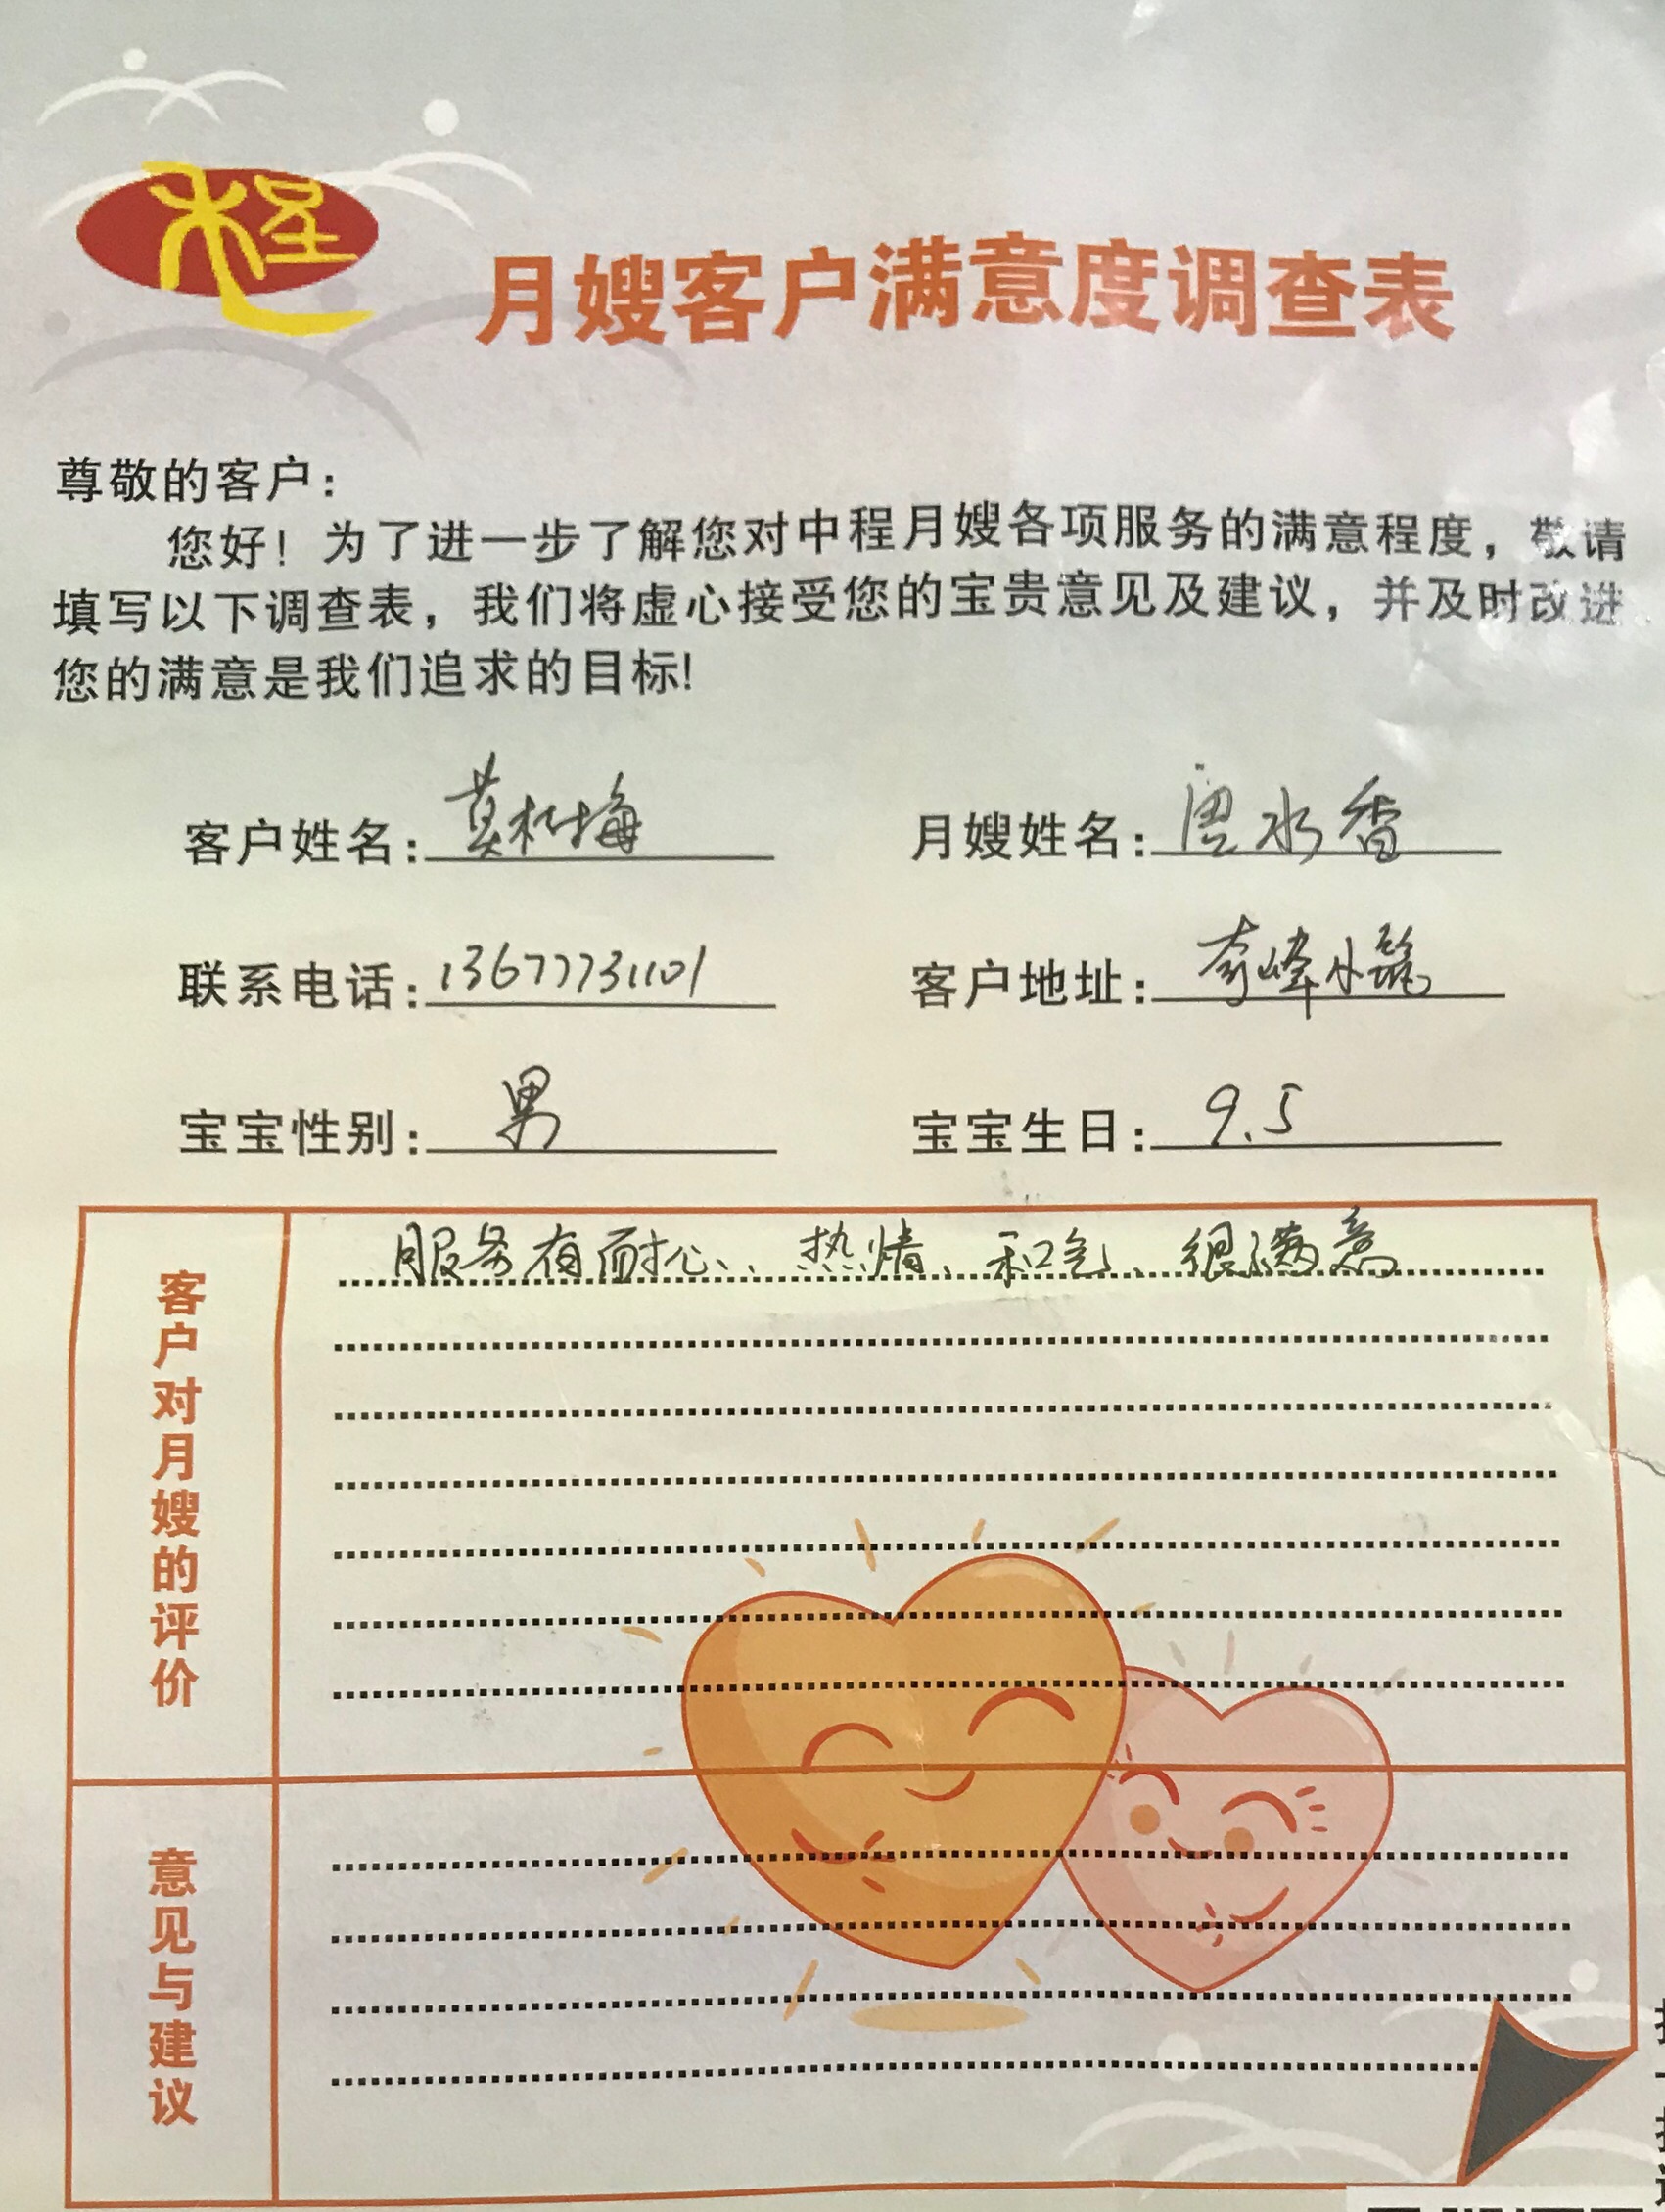 程
月嫂客户满意度调查表
尊敬的客户：
您好！为了进一步了解您对中程月嫂各项服务的满意程度，敬请
填写以下调查表，我们将虚心接受您的宝贵意见及建议，并及时改进
您的满意是我们追求的目标！
客户姓名：莫松梅 月嫂姓名：周水香
联系电话：13677731101 客户地址：奇峰小筑
宝宝性别：男 宝宝生日：9.5
客户对月嫂的评价
服务有耐心、热情、和气、很满意
意见与建议